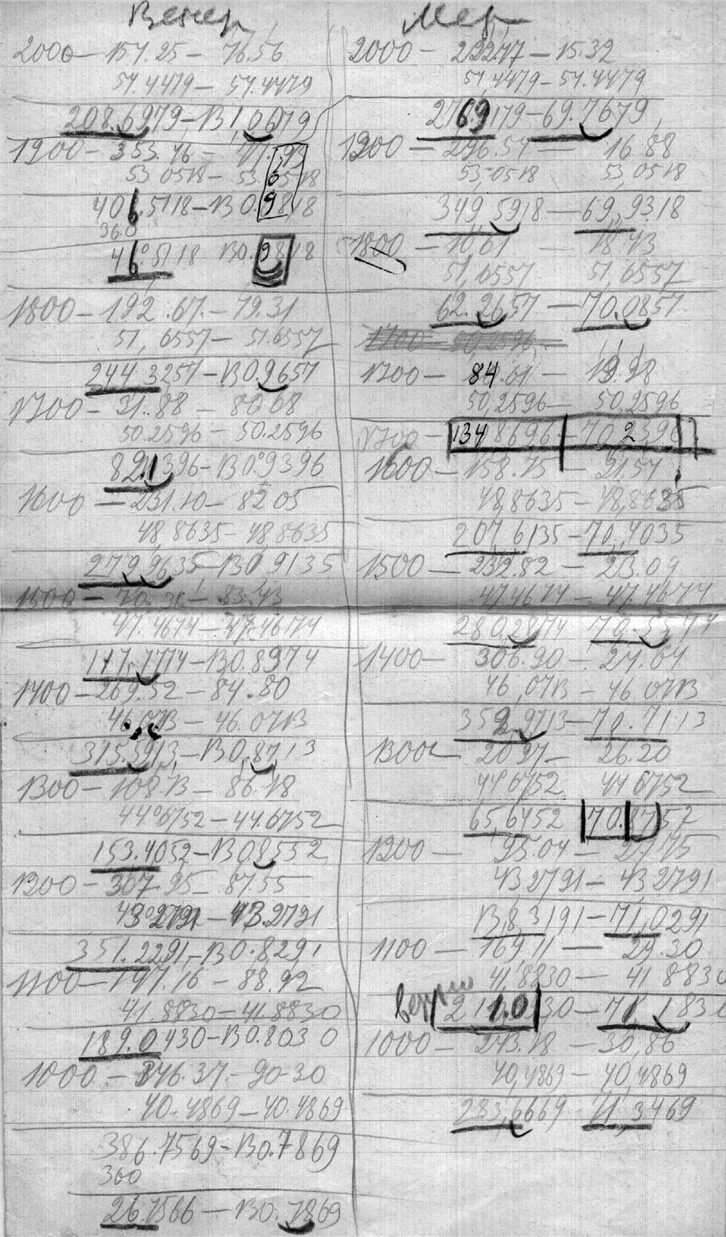 Венер
2000 — 154.25 — 76.56
54.4479 — 54.4479
208.6979 — 131.0079
1900 — 353.46 — 77.93
53.0518 — 53.0518
406.5118 — 130.9818
360
46.5118 130.9818
1800 — 192.67 — 79.31
51,6557 — 51.6557
244 3257 — 130.9657
1700 — 31.88 — 80.68
50.2596 — 50.2596
82.1396 — 130.9396
1600 — 231.10 — 82.05
48,8635 — 48,8635
279.9635 — 130.9135
1500 — 70.31 — 83.43
47.4674 — 47.4674
117.7774 — 130.8974
1400 — 269.52 — 84.80
46.0713 — 46.0713
315.5913 — 130.8713
1300 — 108.73 — 86.18
44.6752 — 44.6752
153.4052 — 130.8552
1200 — 307.95 — 87.55
43.2791 — 43.2791
351.2291 — 130.8291
1100 — 147.16 — 88.92
41.8830 — 41.8830
189.0430 — 130.8030
1000 — 346.27 — 90.30
40.4869 — 40.4869
386.7569 — 130.7869
360
26.7566 — 130.7869
Мер
2000 — 222.47 — 15.32
54,4479 — 54.4479
276.9179 — 69.7679
1900 — 296.54 — 16.88
53,0518 53,0518
349.5918 — 69,9318
1800 — 10.61 — 18.43
51,6557 51,6557
62.2657 — 70.0857
1700 — 84.61 — 19.98
50,2596 — 50,2596
1700 — 134 8696 — 70,2396
1600 — 158.75 21.54
48,8635 — 48,8635
207.6135 — 70,4035
1500 — 232.82 — 23.09
47.4674 — 47.4674
280.2874 70.5574
1400 — 306.90 — 24.64
46,0713 — 46 0713
352.9713 — 70.7113
1300 — 20.97 — 26.20
44 6752 44 6752
65.6452 70.8752
1200 — 95.04 — 27.75
43 2791 — 43 2791
138,3191 — 71,0291
1100 — 169 11 — 29.30
41,8830 — 41 8830
211.030 — 71 1830
1000 — 243.18 — 30,86
40,4869 — 40,4869
283,6669 71,3469